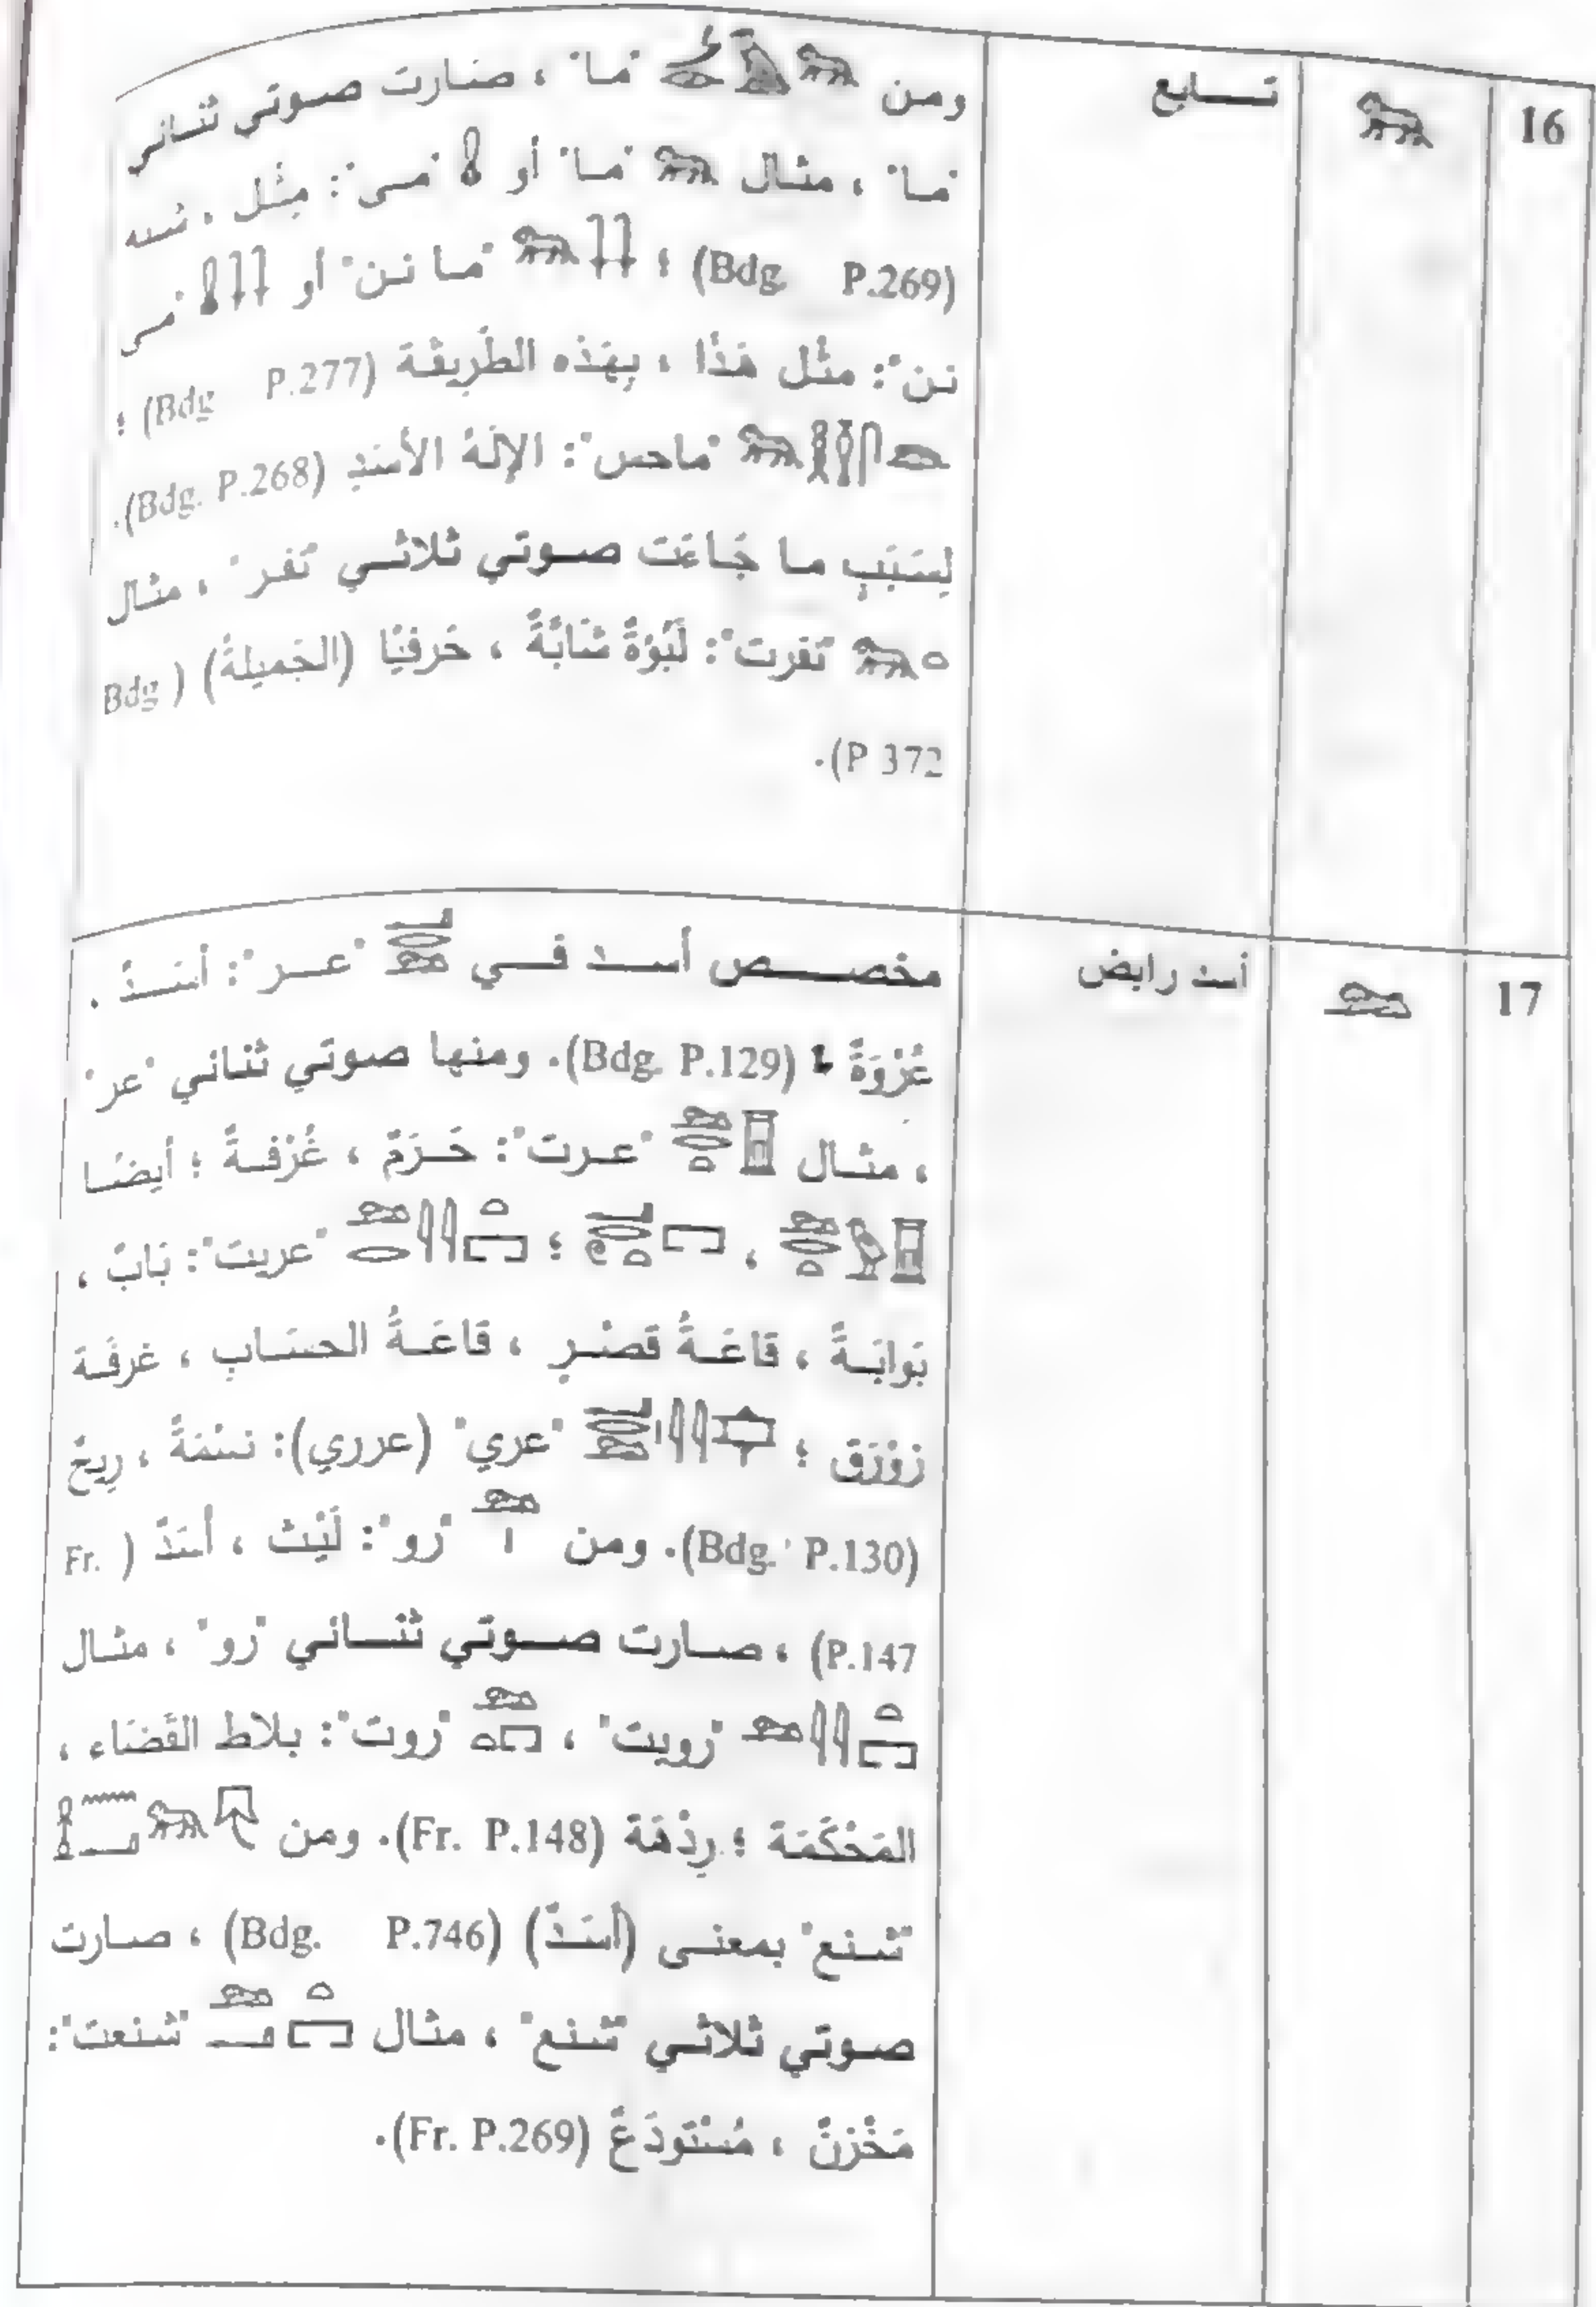 16
تـــابع
ومن "ما" ، صَارت صـوتي ثنـائي
"مـا" ، مثـال "مـا" أو "مـى": مِثْـل ، شبه
(Bdg. P.269) ؛ "مـا نـن" أو "مـى
نـن": مثْـل هَذَا ، بِهَذه الطَّرِيقَـة (Bdg P.277) ؛
"ماحس": الإلَهُ الأسَدِ (Bdg. P.268).
لِسَبَبٍ مـا جَـاءَت صـوتي ثلاثـي "نفـر" ، مثـال
"نفرت": لَبُؤَةٌ شَابَّةٌ ، حَرفيًا (الجَميلةُ) (Bdg
P 372).
17
أسد رابض
مخصــــص أســد فـــي "عـــر": أسَـــدٌ .
عُرْوَةٌ (Bdg. P.129). ومنها صوتي ثنائي "عر"
، مثـال "عـرت": حَـرَمٌ ، غُرْفـةٌ ؛ أيضًـا
، ؛ "عريت": بَابٌ ،
بَوابَـةٌ ، قاعَـةُ قصْـرٍ ، قاعَـةُ الحسَـابِ ، غرفَـة
زَوْرَق ؛ "عري" (عرري): نسْمَةٌ ، رِيحٌ
(Bdg. P.130). ومن "رو": لَيْثٌ ، أَسَدٌ (Fr.
P.147) ، صـارت صـوتي ثنــائي "رو" ، مثـال
"رويت" ، "روت": بلاط القَضَاء ،
المَحْكَمَة ؛ رِدْهَة (Fr. P.148). ومن
"شـنع" بمعنـى (أَسَـدٌ) (Bdg. P.746) ، صـارت
صـوتي ثلاثـي "شـنع" ، مثـال "شنعت":
مَخْزنٌ ، مُسْتَودَعٌ (Fr. P.269).